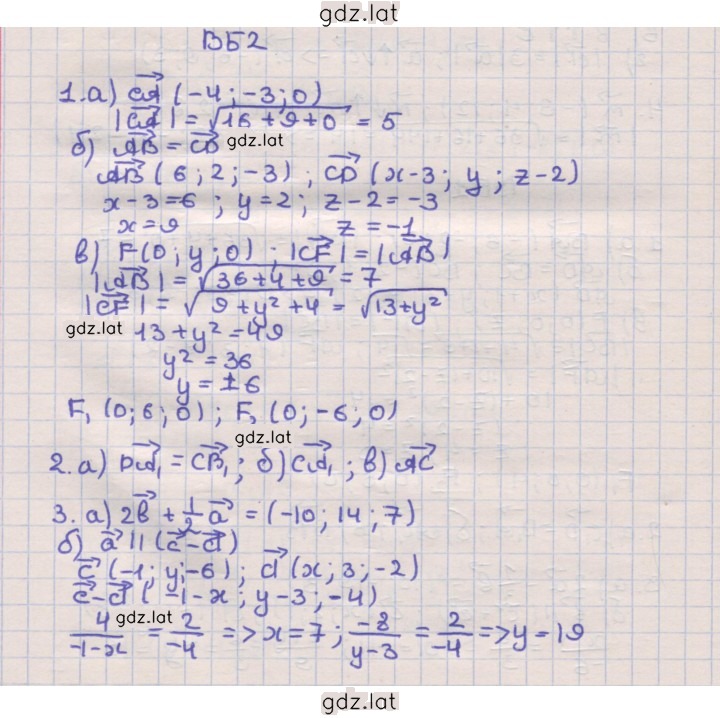 gdz.lat
ВБ2
1. а) C⃗A⃗ (-4; -3; 0)
|CA⃗| = √(16 + 9 + 0) = 5
б) AB⃗ = CD⃗
gdz.lat
AB⃗ (6; 2; -3) ; CD⃗ (x-3; y; z-2)
x-3=6 ; y=2; z-2=-3
x=9 z=-1
в) F(0; y; 0) ; |CF⃗| = |AB⃗|
|AB⃗| = √(36+4+9) = 7
|CF⃗| = √(9+y²+4) = √(13+y²)
gdz.lat
13+y²=49
y² = 36
y = ±6
F₁ (0; 6; 0) ; F₂ (0; -6; 0)
gdz.lat
2. а) DA₁⃗ = CB₁⃗ ; б) CA₁⃗ ; в) AC⃗
3. а) 2b⃗ + 1/2 a⃗ = (-10; 14; 7)
б) a⃗ || (c⃗-d⃗)
c⃗ (-1; y; -6) ; d⃗ (x; 3; -2)
c⃗-d⃗ (-1-x; y-3; -4)
gdz.lat
4/(-1-x) = 2/-4 => x=7 ; -8/(y-3) = 2/-4 => y=19
gdz.lat